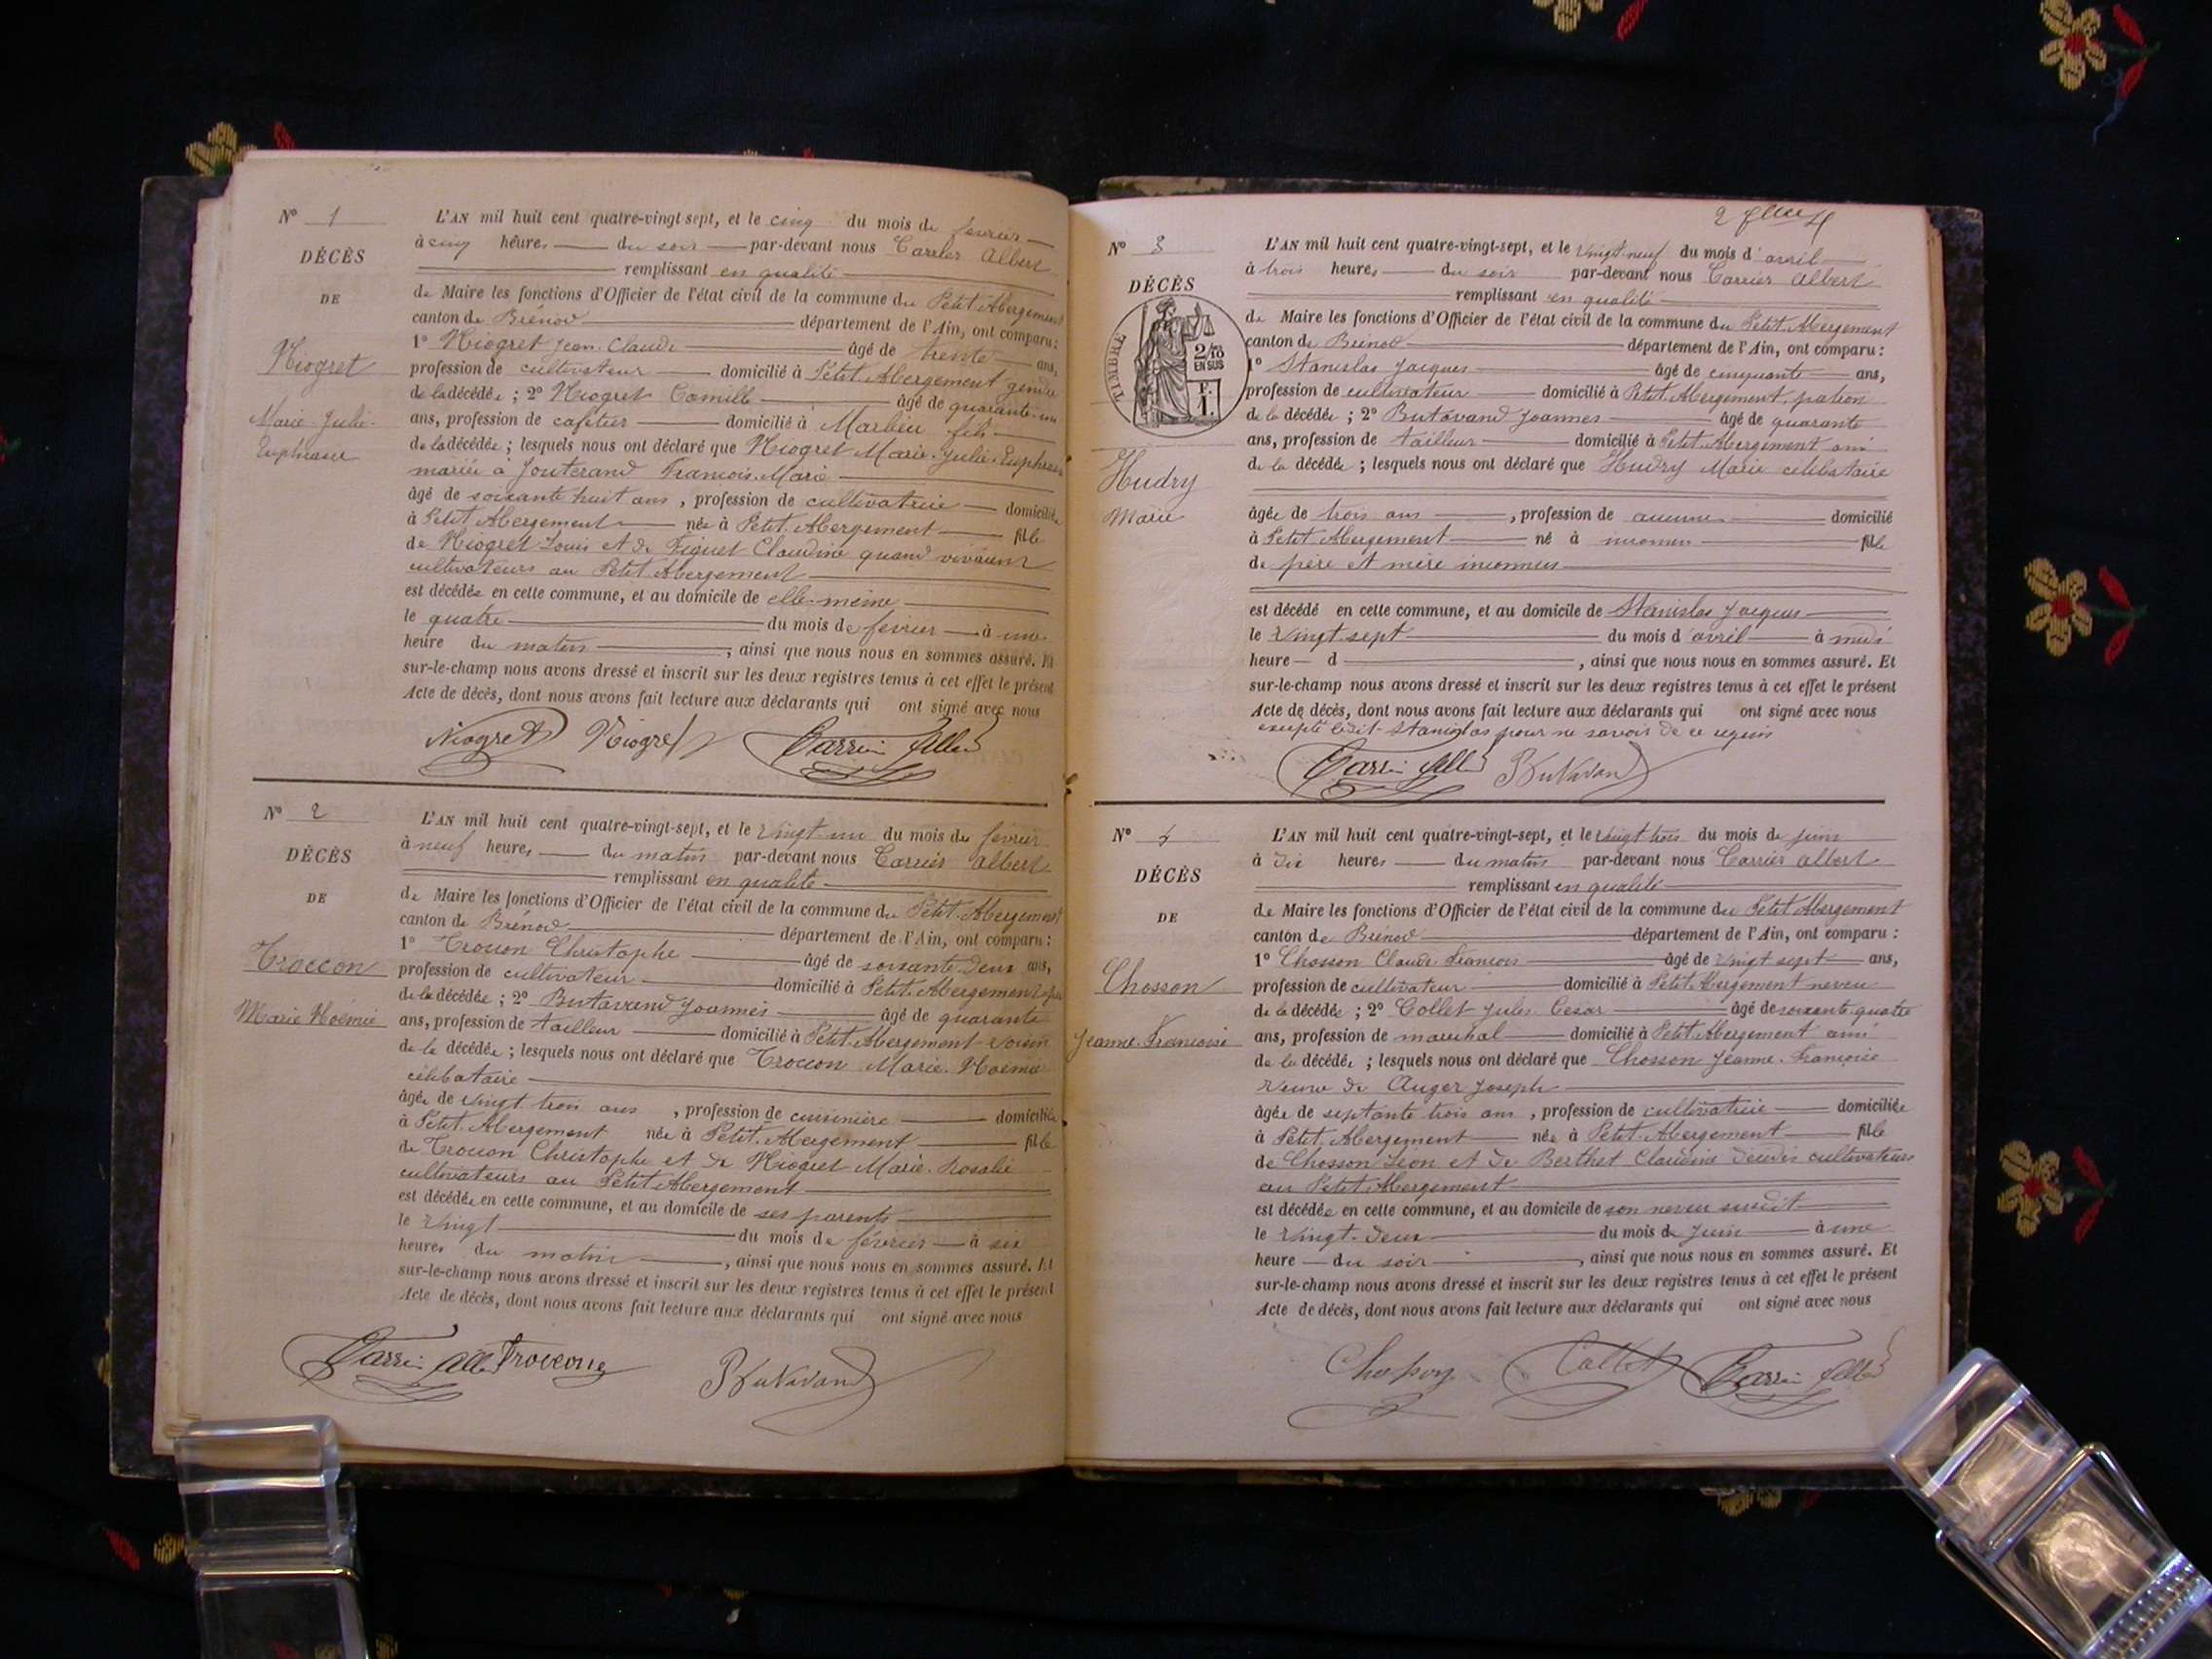 N° 1
DÉCÈS
DE
Niogret
Marie-Julie-
Euphrasie
L'AN mil huit cent quatre-vingt sept, et le cinq du mois de février
à cinq heures du soir par-devant nous Carrier Albert
remplissant en qualité
de Maire les fonctions d'Officier de l'état civil de la commune du Petit Abergement
canton de Brénod département de l'Ain, ont comparu :
1° Niogret Jean Claude âgé de trente ans,
profession de cultivateur domicilié à Petit Abergement gendre
de la décédée ; 2° Niogret Camille âgé de quarante-un
ans, profession de cafetier domicilié à Marlieu fils
de la décédée ; lesquels nous ont déclaré que Niogret Marie-Julie-Euphrasie
mariée à Jouterand François-Marie
âgé de soixante huit ans, profession de cultivatrice domiciliée
à Petit Abergement née à Petit-Abergement fille
de Niogret Louis et de Figuet Claudine quand vivaient
cultivateurs au Petit Abergement
est décédée en cette commune, et au domicile de elle-même
le quatre du mois de fevrier à une
heure du matin ; ainsi que nous nous en sommes assuré. Et
sur-le-champ nous avons dressé et inscrit sur les deux registres tenus à cet effet le présent
Acte de décès, dont nous avons fait lecture aux déclarants qui ont signé avec nous
Niogret Niogret Carrier Albert
N° 2
DÉCÈS
DE
Troccon
Marie Noémie
L'AN mil huit cent quatre-vingt-sept, et le vingt un du mois de février
à neuf heures du matin par-devant nous Carrier Albert
remplissant en qualité
de Maire les fonctions d'Officier de l'état civil de la commune du Petit-Abergement
canton de Brénod département de l'Ain, ont comparu :
1° Troccon Christophe âgé de soixante deux ans,
profession de cultivateur domicilié à Petit-Abergement père
de la décédée ; 2° Butavand Joannès âgé de quarante
ans, profession de tailleur domicilié à Petit-Abergement voisin
de la décédée ; lesquels nous ont déclaré que Troccon Marie-Noémie
célibataire
âgée de vingt trois ans, profession de cuisinière domiciliée
à Petit-Abergement née à Petit-Abergement fille
de Troccon Christophe et de Niogret Marie-Rosalie
cultivateurs au Petit Abergement
est décédée en cette commune, et au domicile de ses parents
le vingt du mois de février à six
heures du matin, ainsi que nous nous en sommes assuré. Et
sur-le-champ nous avons dressé et inscrit sur les deux registres tenus à cet effet le présent
Acte de décès, dont nous avons fait lecture aux déclarants qui ont signé avec nous
Carrier Albert Troccon Butavand
2
N° 3
DÉCÈS
TIMBRE
2/10
EN SUS
F.
1.
Hudry
Marie
L'AN mil huit cent quatre-vingt-sept, et le vingt-neuf du mois d'avril
à trois heures du soir par-devant nous Carrier Albert
remplissant en qualité
de Maire les fonctions d'Officier de l'état civil de la commune du Petit-Abergement
canton de Brénod département de l'Ain, ont comparu :
1° Stanislas Jacques âgé de cinquante ans,
profession de cultivateur domicilié à Petit-Abergement, patron
de la décédée ; 2° Butavand Joannes âgé de quarante
ans, profession de tailleur domicilié à Petit-Abergement ami
de la décédée ; lesquels nous ont déclaré que Hudry Marie célibataire
âgée de trois ans, profession de aucune domicilié
à Petit Abergement né à inconnu fille
de père et mère inconnus
est décédé en cette commune, et au domicile de Stanislas Jacques
le vingt sept du mois d'avril à midi
heure d, ainsi que nous nous en sommes assuré. Et
sur-le-champ nous avons dressé et inscrit sur les deux registres tenus à cet effet le présent
Acte de décès, dont nous avons fait lecture aux déclarants qui ont signé avec nous
excepté ledit Stanislas pour ne savoir de ce requis
Carrier Albert Butavand
N° 4
DÉCÈS
DE
Chosson
Jeanne-Françoise
L'AN mil huit cent quatre-vingt-sept, et le vingt trois du mois de juin
à dix heures du matin par-devant nous Carrier Albert
remplissant en qualité
de Maire les fonctions d'Officier de l'état civil de la commune du Petit Abergement
canton de Brénod département de l'Ain, ont comparu :
1° Chosson Claude François âgé de vingt sept ans,
profession de cultivateur domicilié à Petit-Abergement neveu
de la décédée ; 2° Collet Jules César âgé de soixante-quatre
ans, profession de marechal domicilié à Petit Abergement ami
de la décédée ; lesquels nous ont déclaré que Chosson Jeanne-Françoise
veuve de Auger Joseph
âgée de septante trois ans, profession de cultivatrice domiciliée
à Petit-Abergement née à Petit-Abergement fille
de Chosson Léon et de Berthet Claudine décédés cultivateurs
au Petit Abergement
est décédée en cette commune, et au domicile de son neveu susdit
le vingt-deux du mois de juin à une
heure du soir, ainsi que nous nous en sommes assuré. Et
sur-le-champ nous avons dressé et inscrit sur les deux registres tenus à cet effet le présent
Acte de décès, dont nous avons fait lecture aux déclarants qui ont signé avec nous
Chosson Collet Carrier Albert